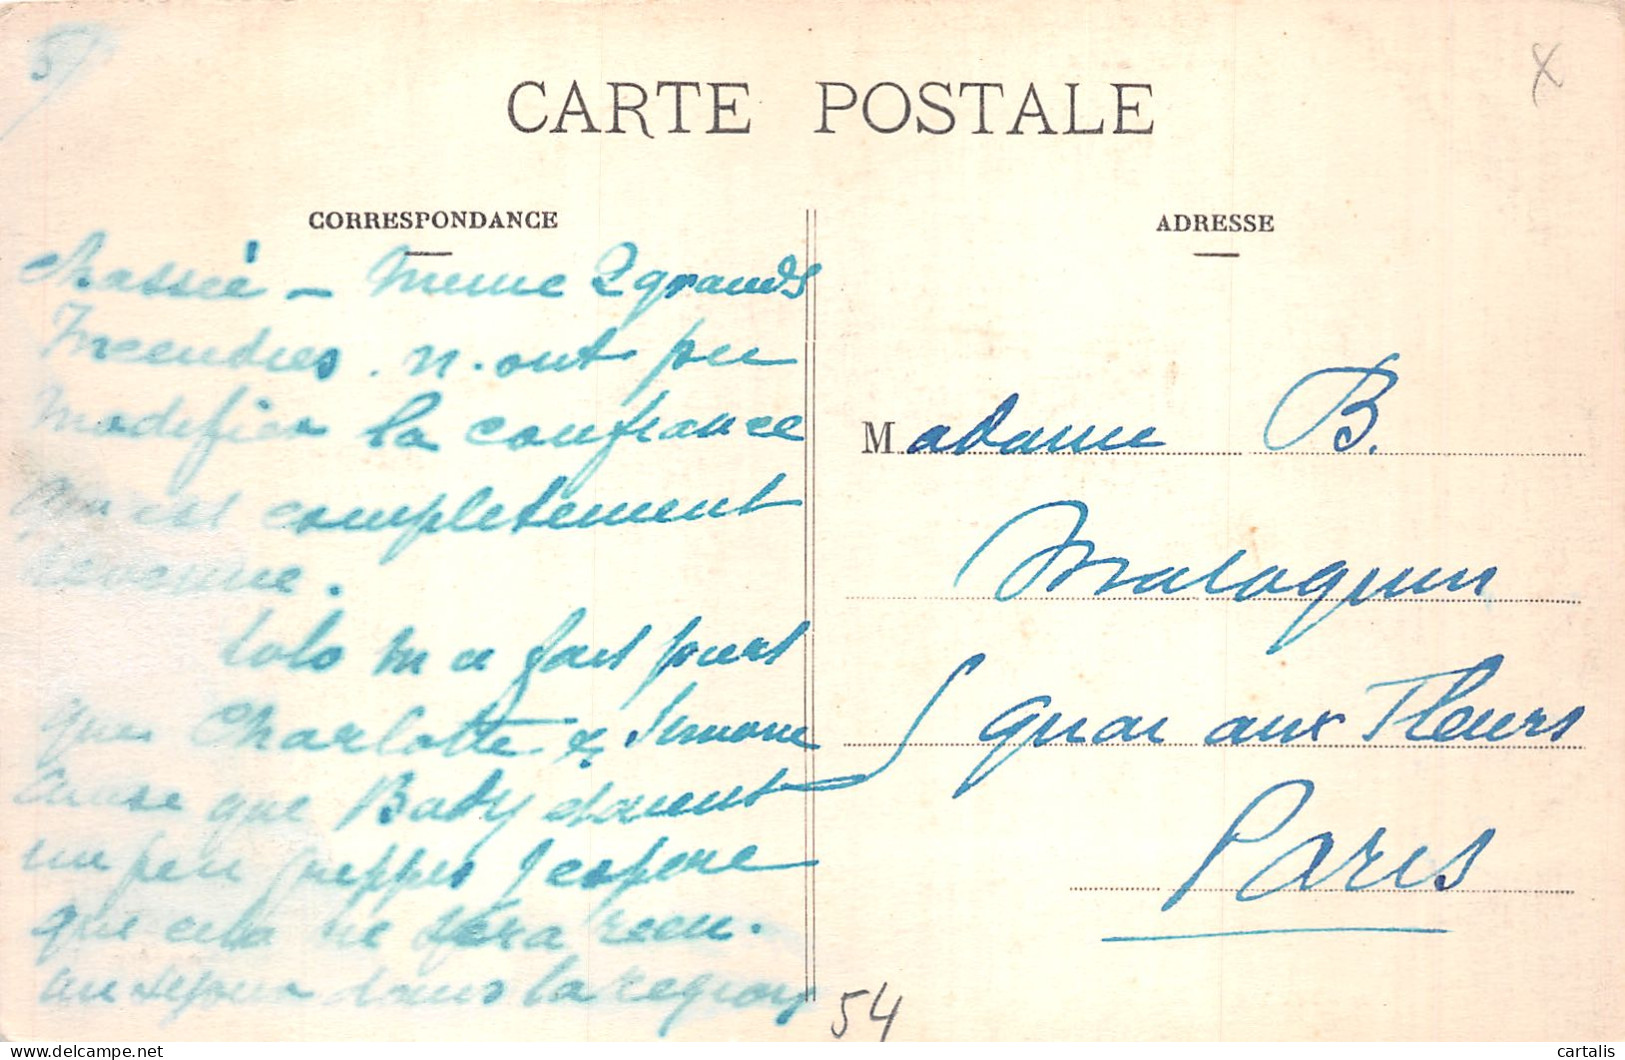 5
X
CARTE POSTALE
CORRESPONDANCE
ADRESSE
chassée - Meme 2 grands
Incendies . n. ont pu
Modifier la confiance
qui est completement
revenue.
Lolo m a fait part
que Charlotte & Simone
que Baby etaient
un peu grippés J espere
que cela ne sera rien.
un sejour dans la region
Madame B.
Malaquin
5 quai aux Fleurs
Paris
54
delcampe.net
cartalis